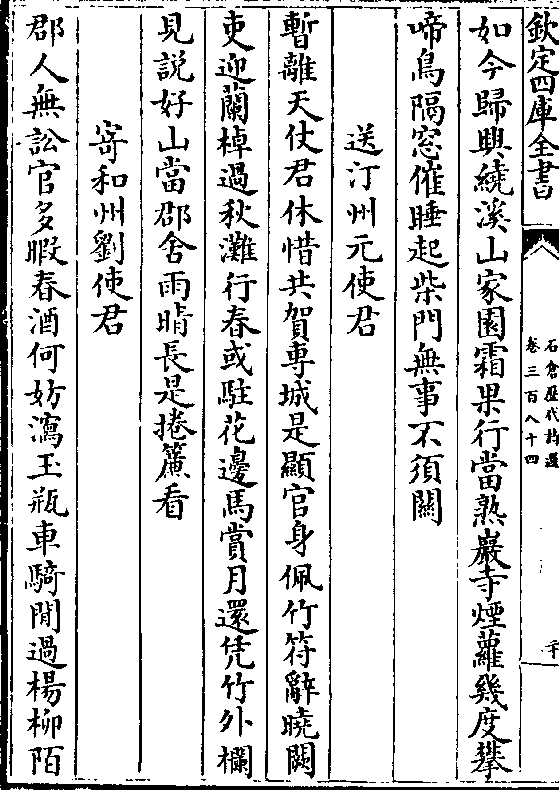 欽定四庫全書
石倉歷代詩選
卷三百八十四
如今歸興繞溪山家園霜果行當熟巖寺煙蘿幾度攀
啼鳥隔窓催睡起柴門無事不須關
送汀州元使君
暫離天仗君休惜共賀専城是顯官身佩竹符辭曉闕
吏迎蘭棹過秋灘行春或駐花邊馬賞月還凭竹外欄
見説好山當郡舍雨晴長是捲簾看
寄和州劉使君
郡人無訟官多暇春酒何妨瀉玉瓶車騎閒過楊柳陌